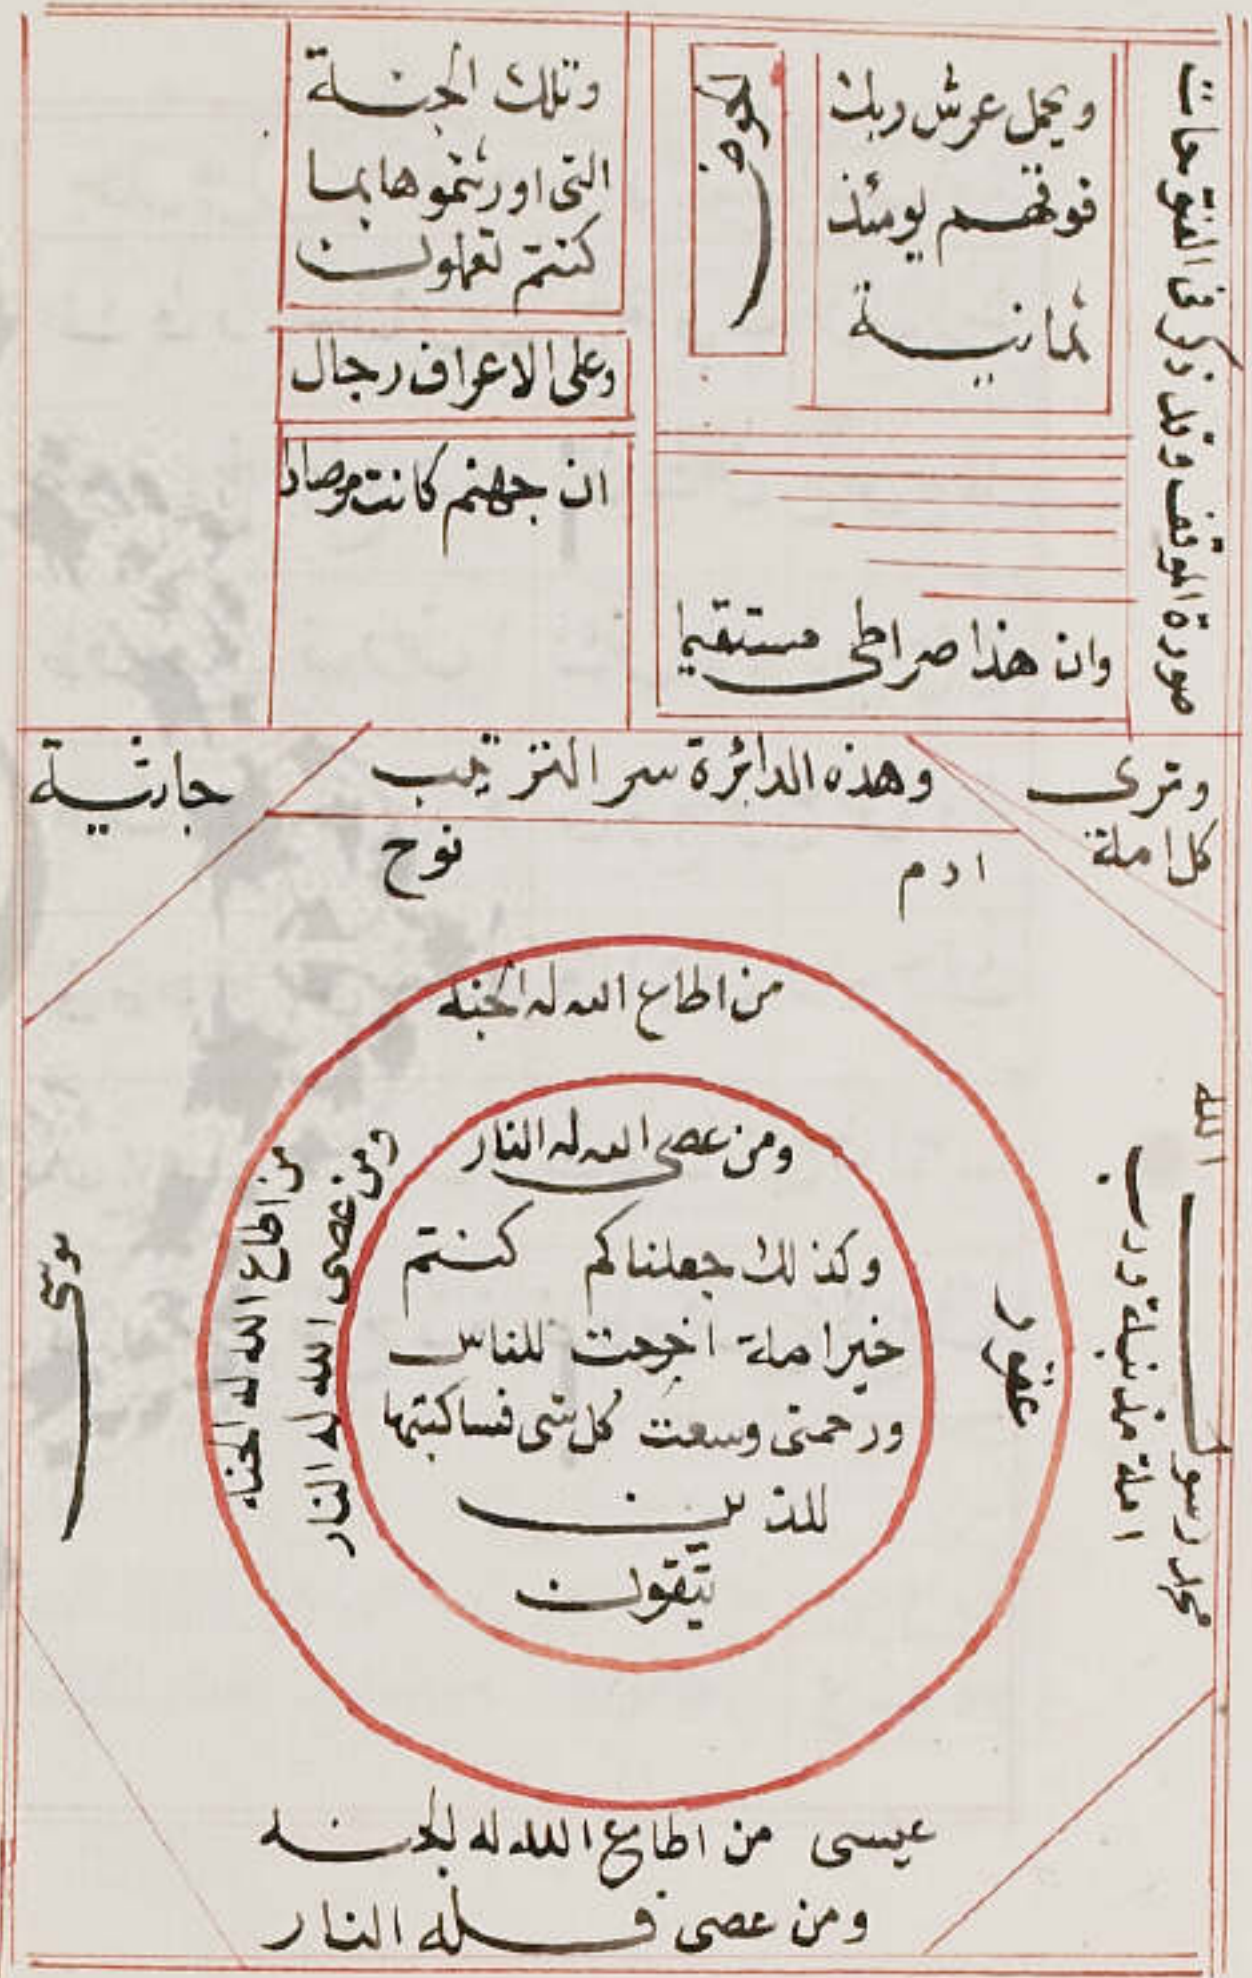 صورة الموقف وقد ذكر فى الفتوحات
ويحمل عرش ربك
فوقهم يومئذ
ثمانية
وتلك الجنة
التى اورثتموها بما
كنتم تعملون
وعلى الاعراف رجال
ان جهنم كانت مرصادا
وان هذا صراطى مستقيما
وترى
كل املة
وهذه الدائرة سر الترتيب
جاثية
ادم
نوح
من اطاع الله له الجنة
ومن عصى الله له النار
وكذلك جعلناكم كنتم
خير املة اخرجت للناس
ورحمتى وسعت كل شى فساكتبها
للذين
يتقون
محمد رسول الله
املة مذنبلة ورب
غفور
من اطاع الله له الجنة
ومن عصى الله له النار
موسى
عيسى من اطاع الله له الجنة
ومن عصى فله النار